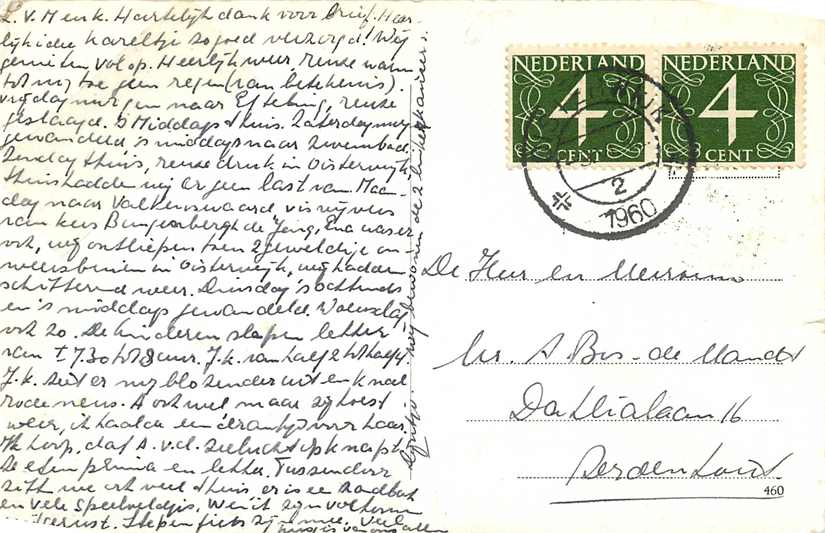 L. V. M en k. Hartelijk dank voor brief. Heer-
lijk idee Kareltje zo goed verzorgd! Wij
genieten volop. Heerlijk weer reuze warm
tot nu toe geen regen (van betekenis).
vrijdagmorgen naar Efteling, reuze
geslaagd. 's Middags thuis. Zaterdagmorgen
gewandeld 's middags naar zwembad.
Zondag thuis, reuze druk in Oisterwijk
thuis hadden wij er geen last van. Maan-
dag naar Valkenswaard, visvijvers
van kees de Jong, Ena was er
ook, wij ontliepen toen 2 geweldige on-
weersbuien in Oisterwijk, wij hadden
schitterend weer. Dinsdag 's ochtends
en 's middags gewandeld. Woensdag
ook zo. De kinderen slapen lekker
van ± 7.30 tot 8 uur. J.k. van half 2 tot half 4
J.k. ziet er nu blozender uit en k nog
rode neus. A ook wel maar zij hoest
weer, ik haalde een drankje voor haar.
Ik hoop, dat A. v.d. zeelucht opknapt.
De eten prima en lekker. Tussendoor
zitten we ook veel thuis, er is een zandbak
en vele speelveldjes.
rust. Stepen fiets zijn mee. Veel
liefs van ons allen
wij bewonen de 2 linkerkamers
NEDERLAND
4
CENT
NEDERLAND
4
CENT
2
1960
De Heer en Mevrouw
A Bos-de Mandt
Dahlialaan 16
460